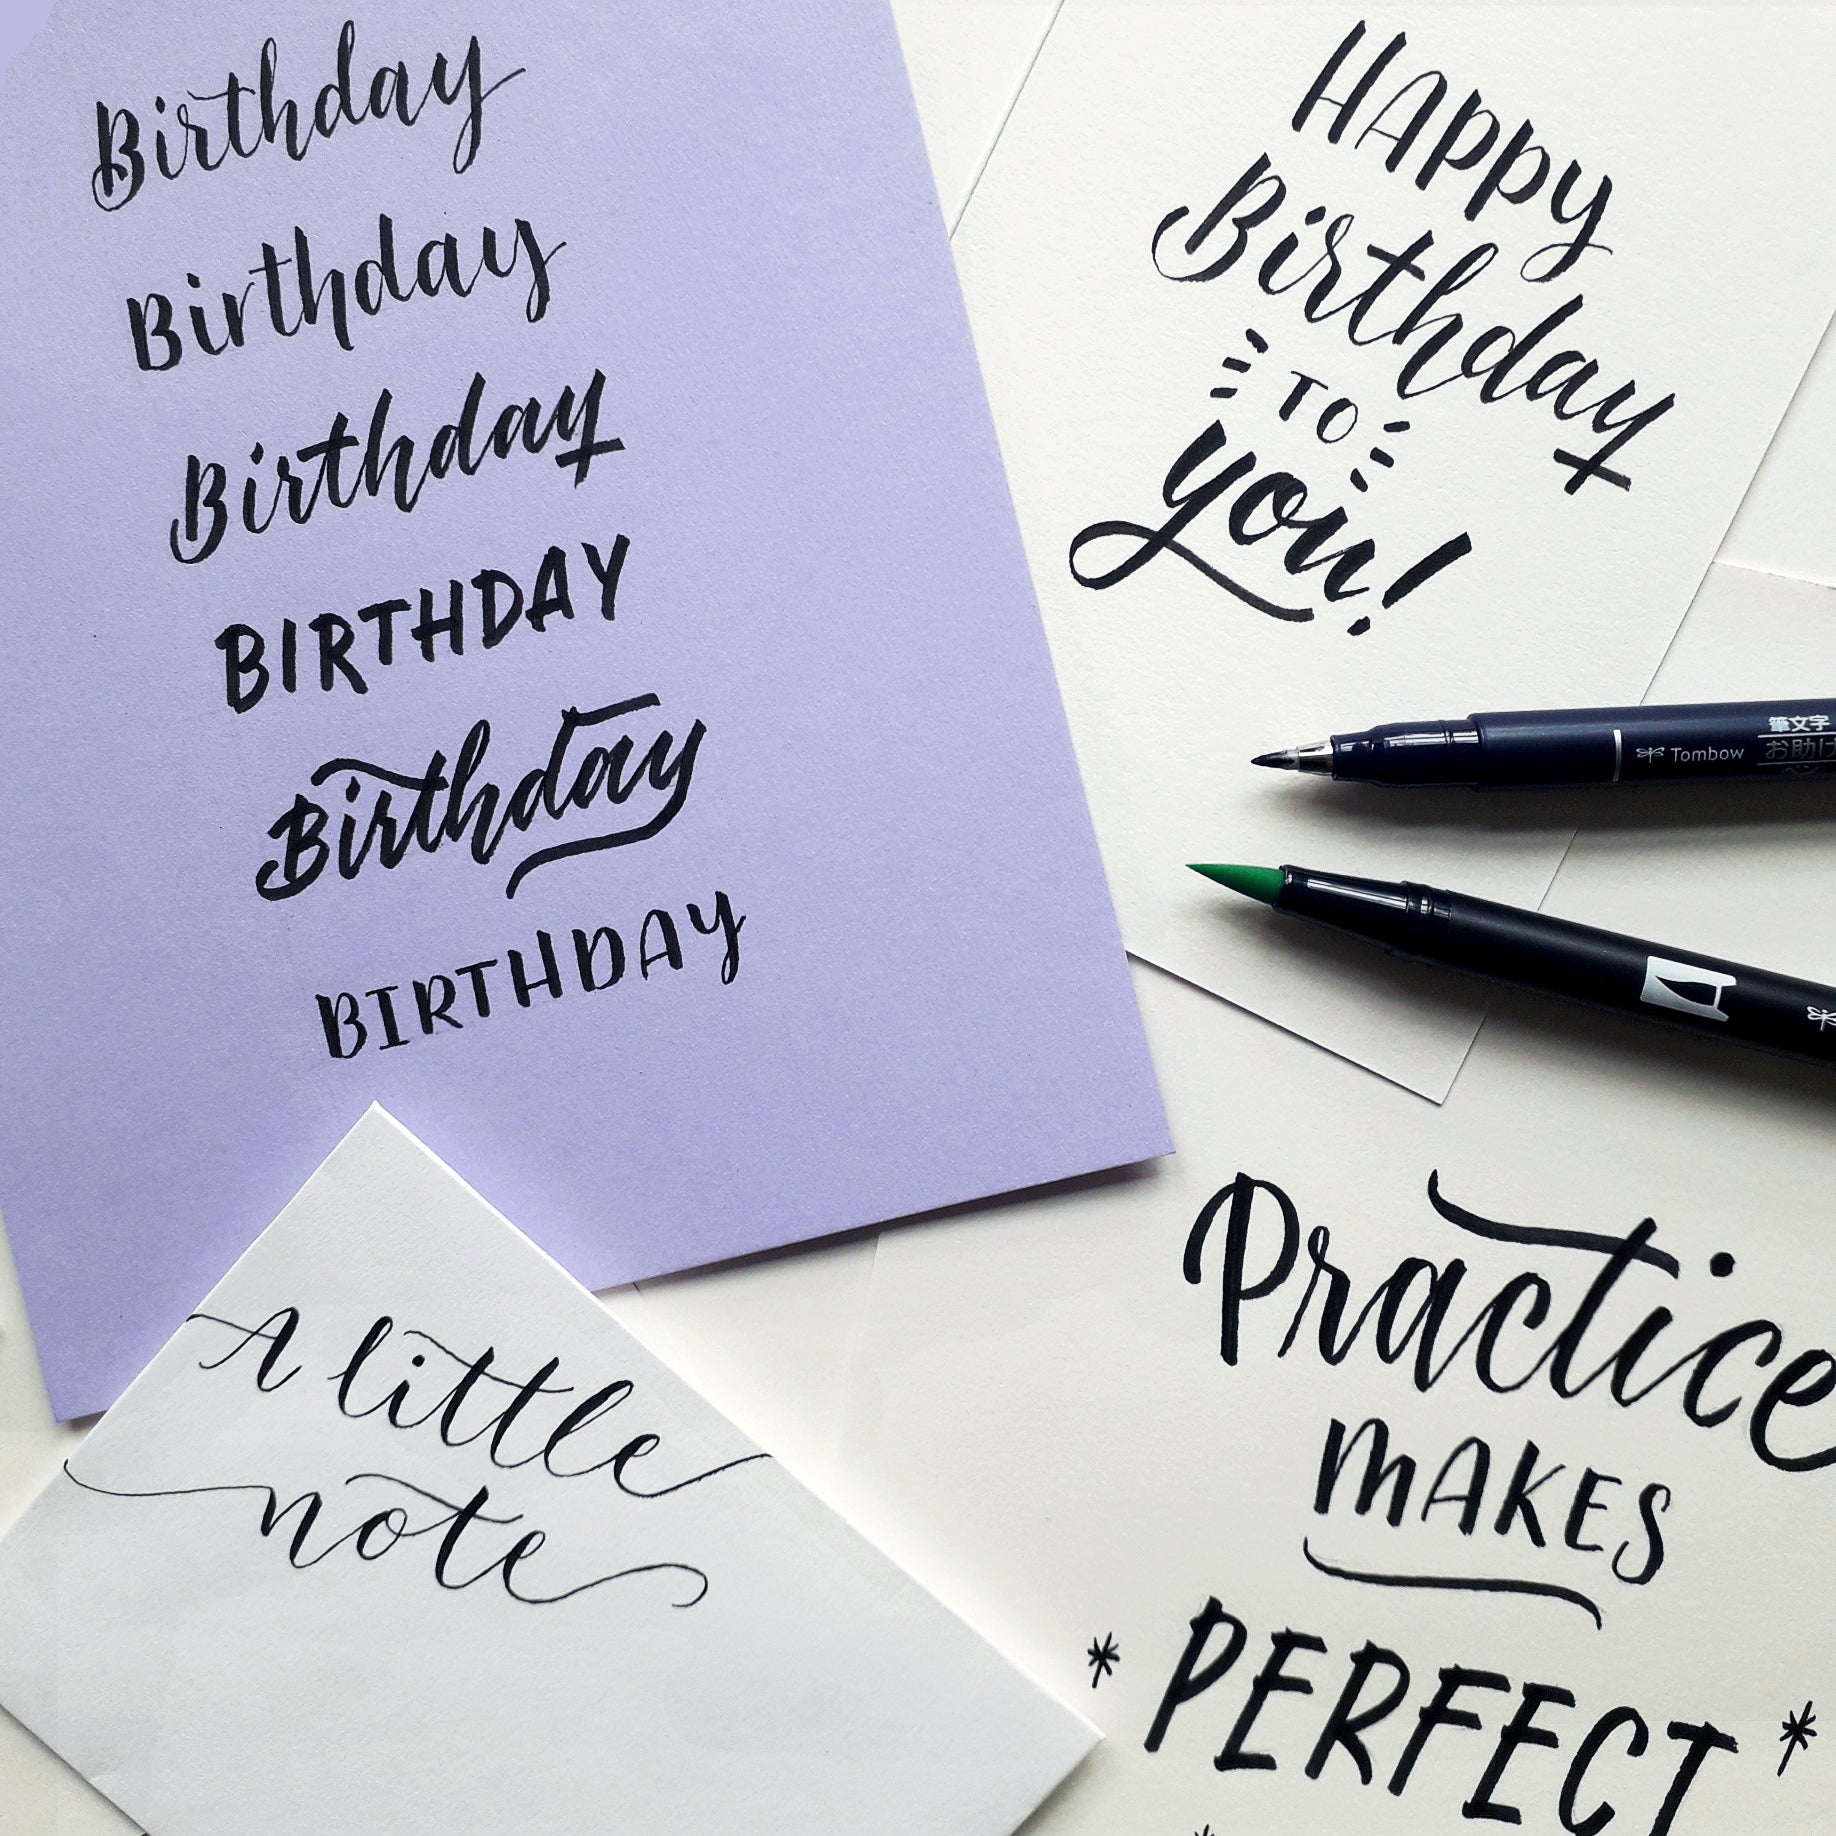 Birthday
Birthday
Birthday
BIRTHDAY
Birthday
BIRTHDAY
HAppy
Birthday
TO
you!
筆文字
Tombow
お助け
A little
note
Practice
MAKES
PERFECT